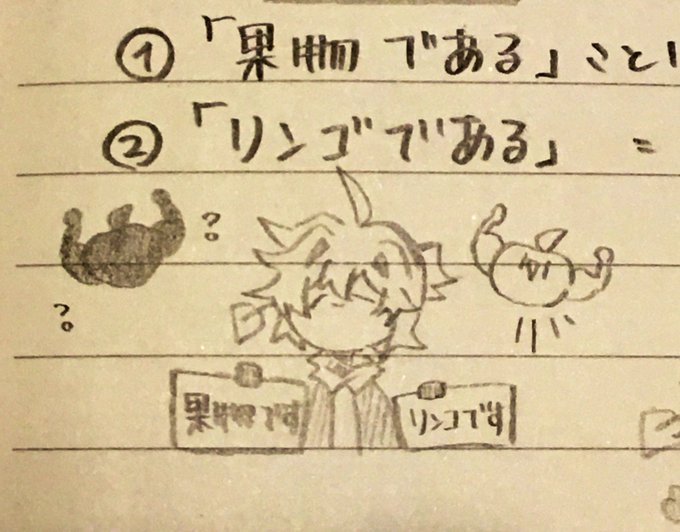 ① 「果物である」こと
② 「リンゴである」 =
?
?
果物です
リンゴです